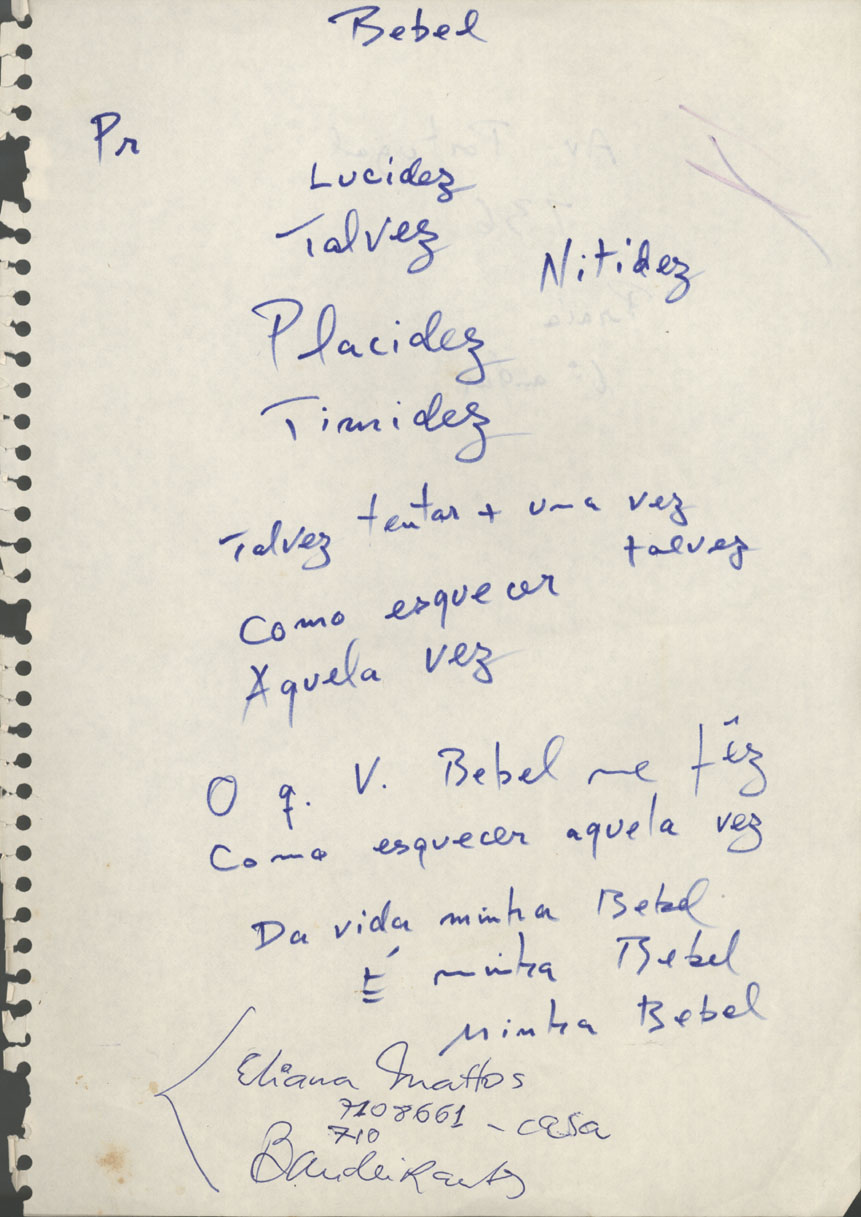 Bebel
Pr
Lucidez
Talvez
Nitidez
Placidez
Timidez
Talvez tentar + uma vez
talvez
Como esquecer
Aquela vez
O q. V. Bebel me fêz
Como esquecer aquela vez
Da vida minha Bebel
É minha Bebel
Minha Bebel
Eliana Mattos
7108661 - casa
710
Bandeirantes